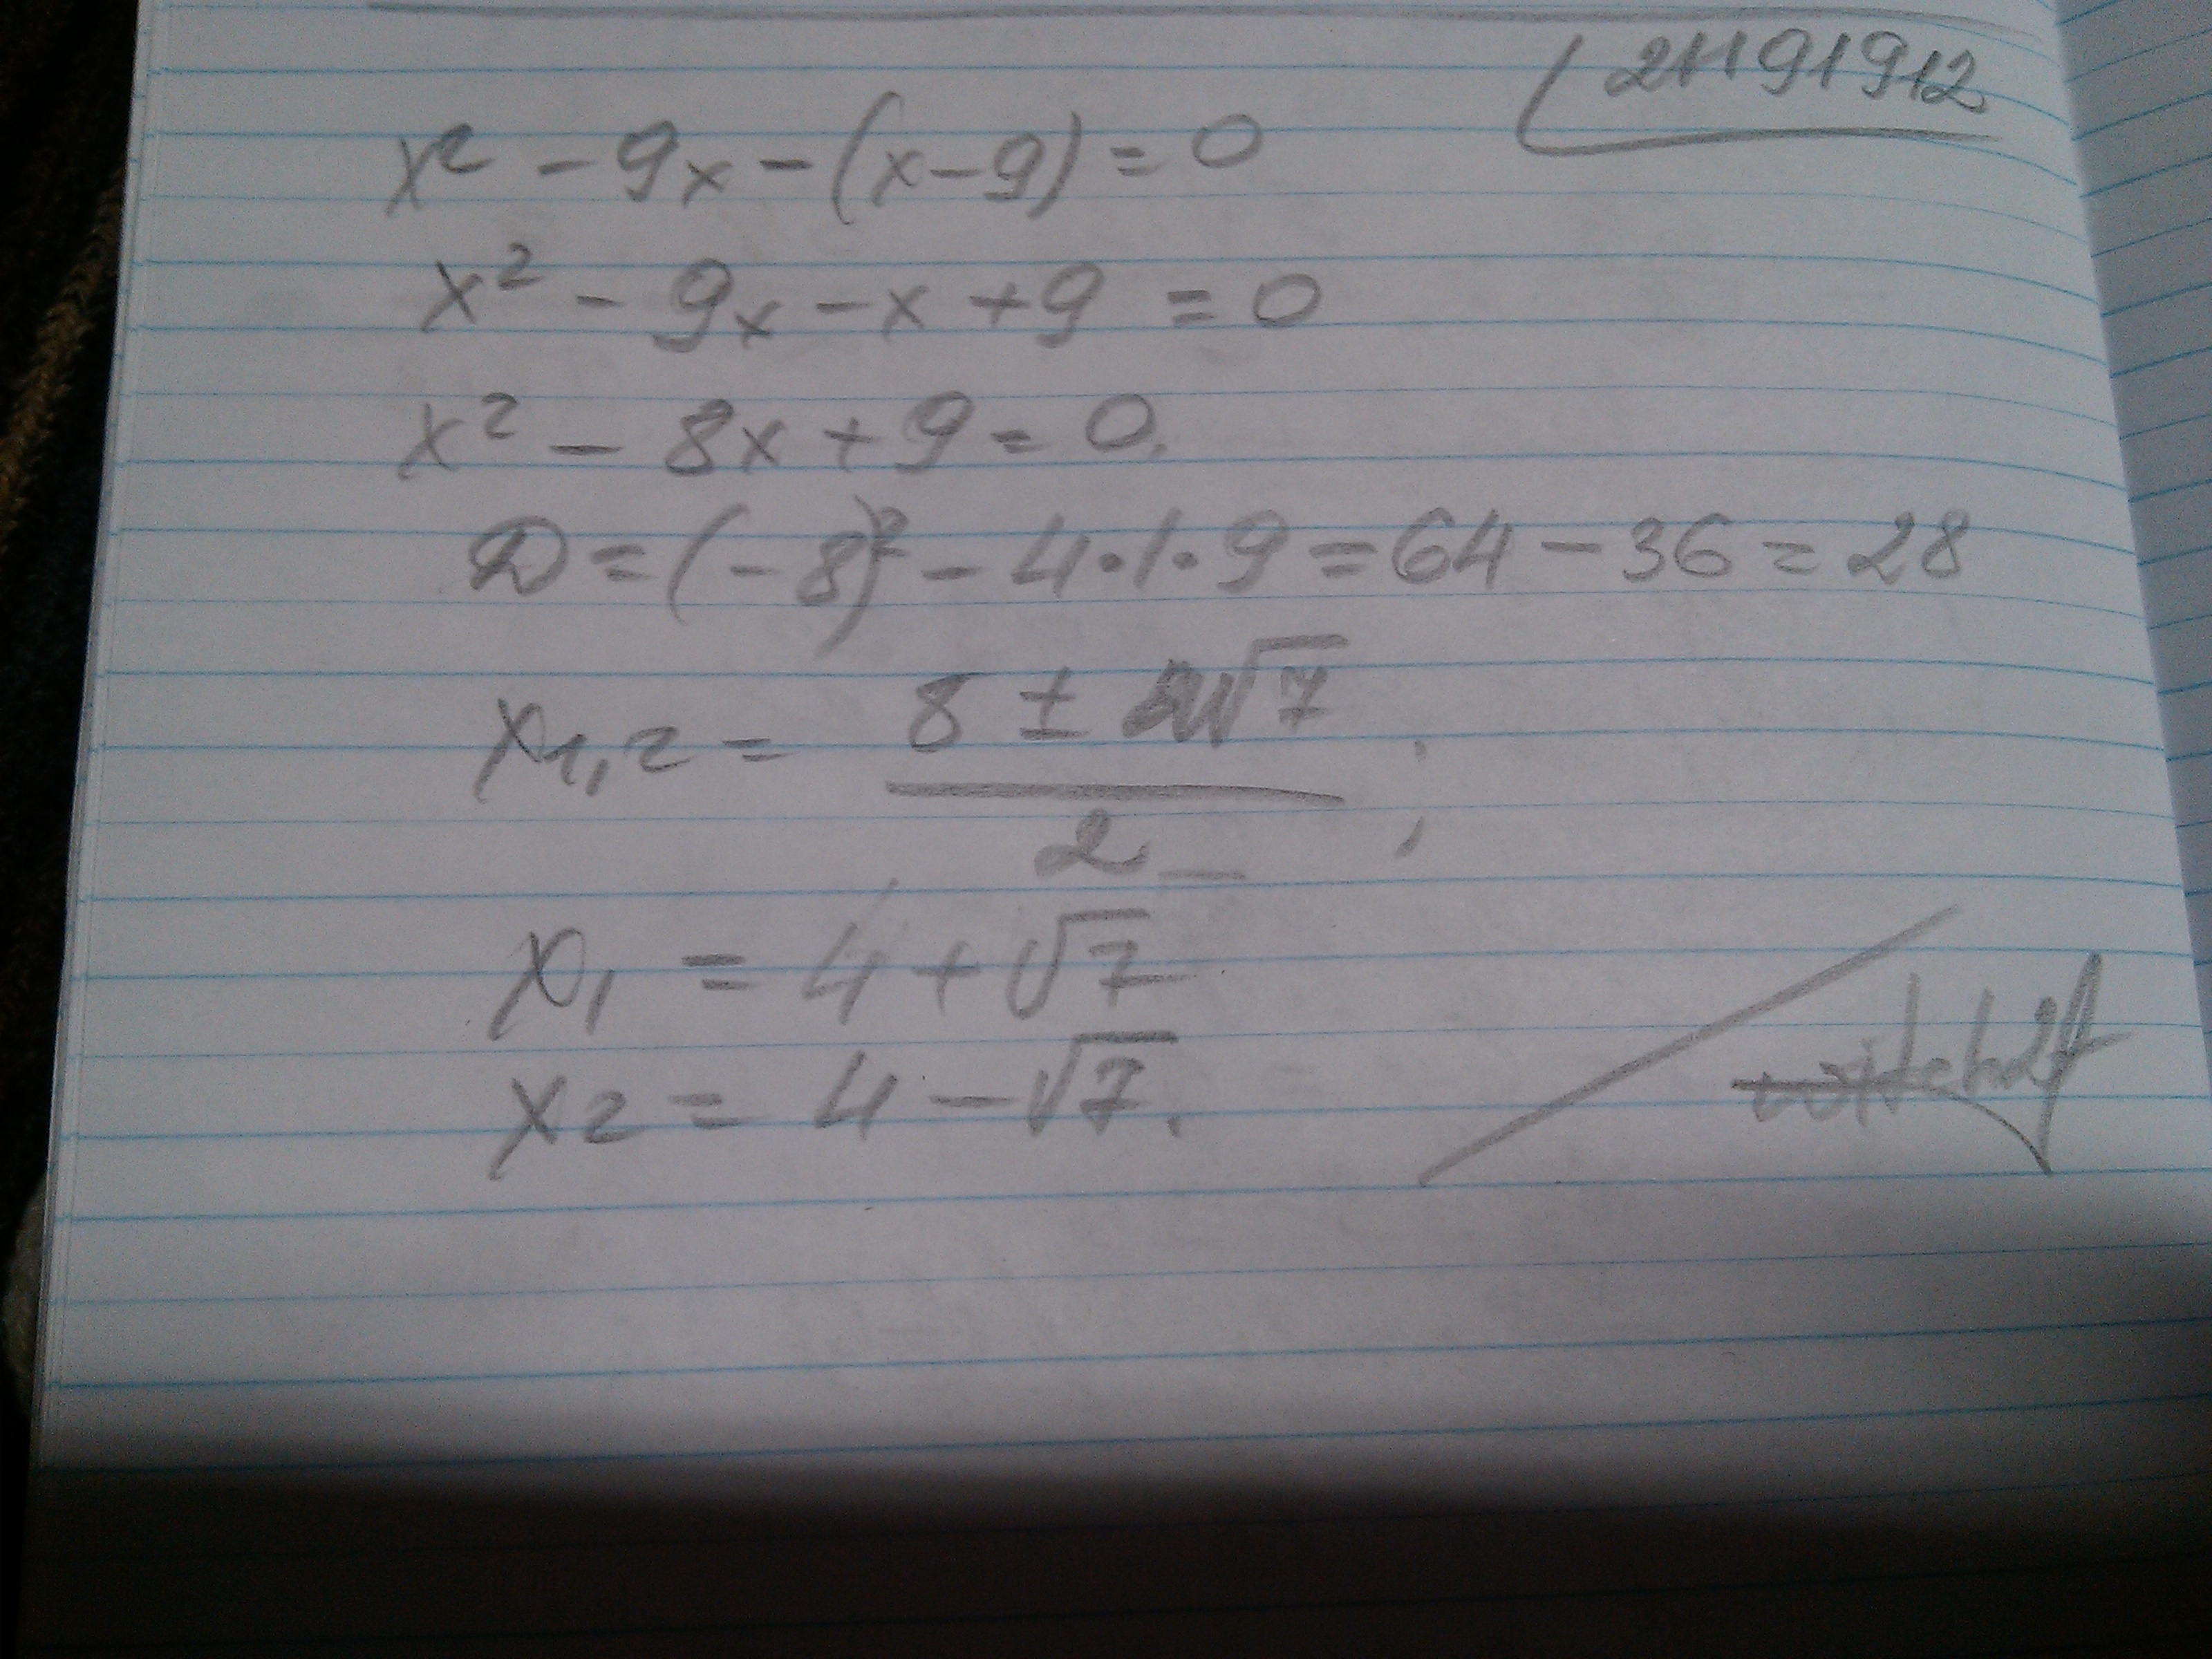 21191912
x² - 9x - (x-9) = 0
x² - 9x - x + 9 = 0
x² - 8x + 9 = 0.
D = (-8)² - 4·1·9 = 64 - 36 = 28
x1,2 = (8 ± 2√7)/2 ;
x1 = 4 + √7
x2 = 4 - √7.